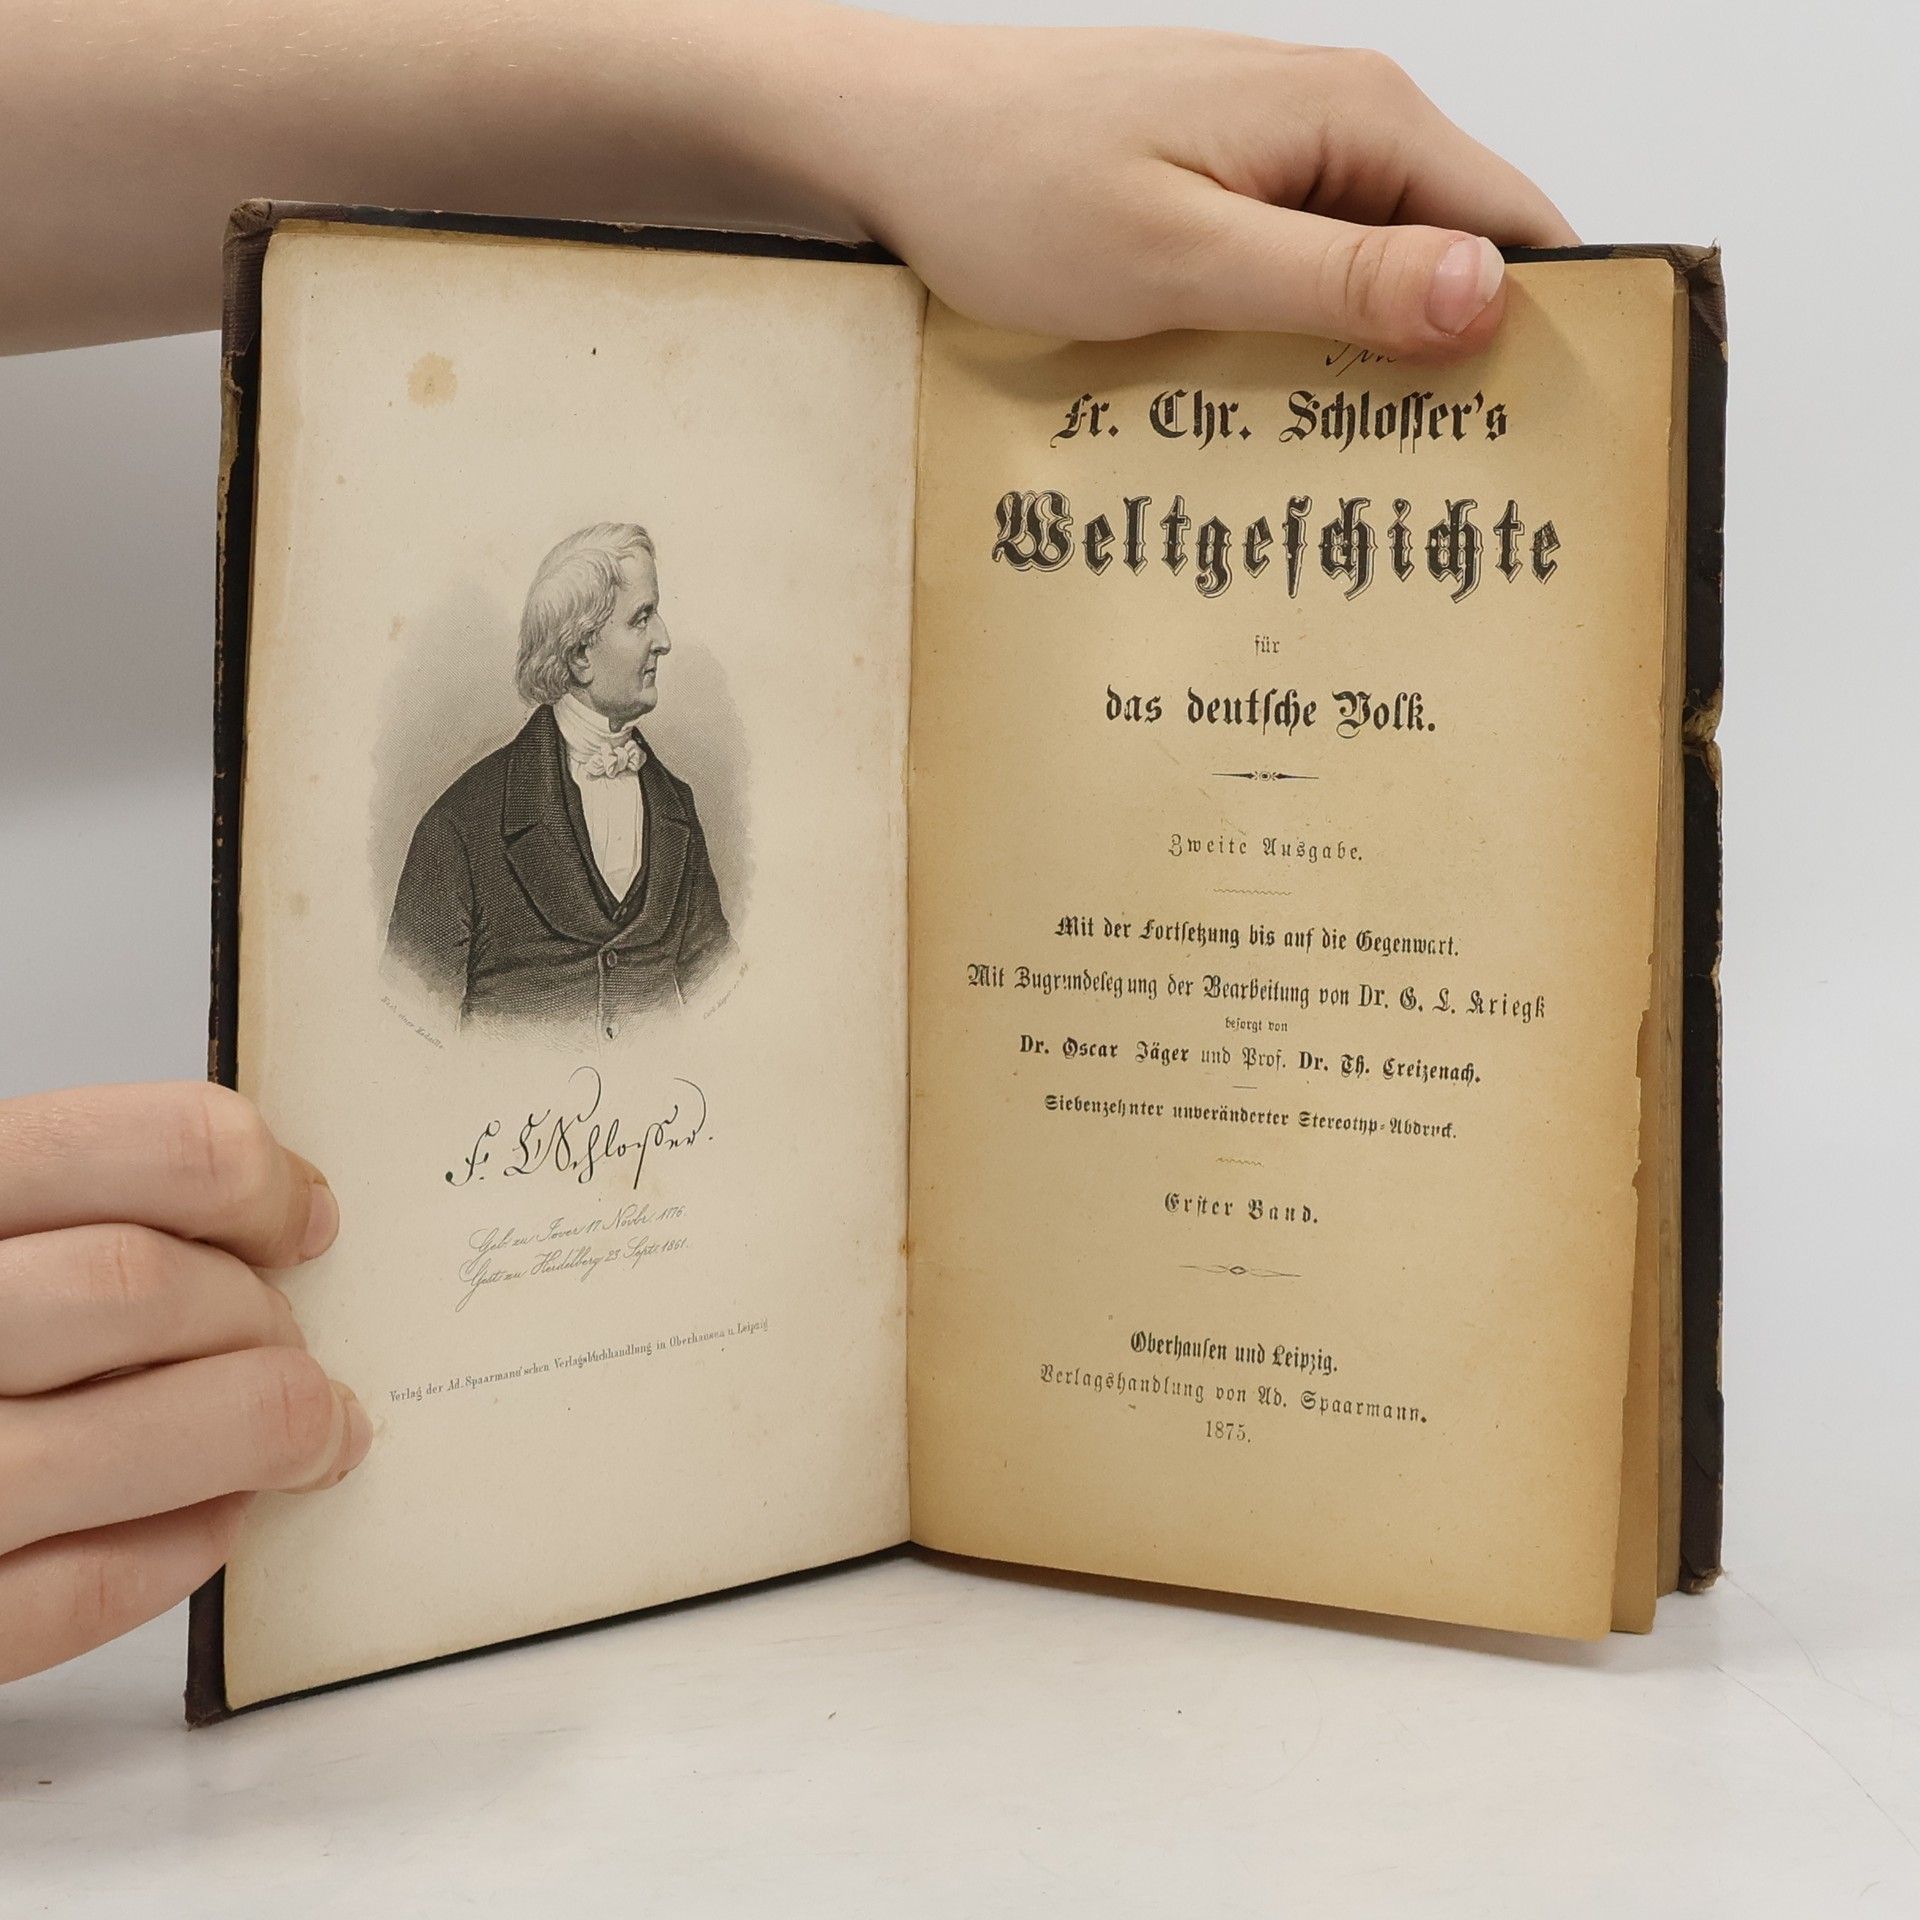 Nach einer Medaille
F. C. Schlosser.
Geb. zu Jever 17. Novbr. 1776.
Gest. zu Heidelberg 23. Sept. 1861.
Verlag der Ad. Spaarmann'schen Verlagsbuchhandlung in Oberhausen u. Leipzig.
Fr. Chr. Schlosser's
Weltgeschichte
für
das deutsche Volk.
Zweite Ausgabe.
Mit der Fortsetzung bis auf die Gegenwart.
Mit Zugrundelegung der Bearbeitung von Dr. G. L. Kriegk
besorgt von
Dr. Oscar Jäger und Prof. Dr. Th. Creizenach.
Siebenzehnter unveränderter Stereotyp-Abdruck.
Erster Band.
Oberhausen und Leipzig.
Verlagshandlung von Ad. Spaarmann.
1875.